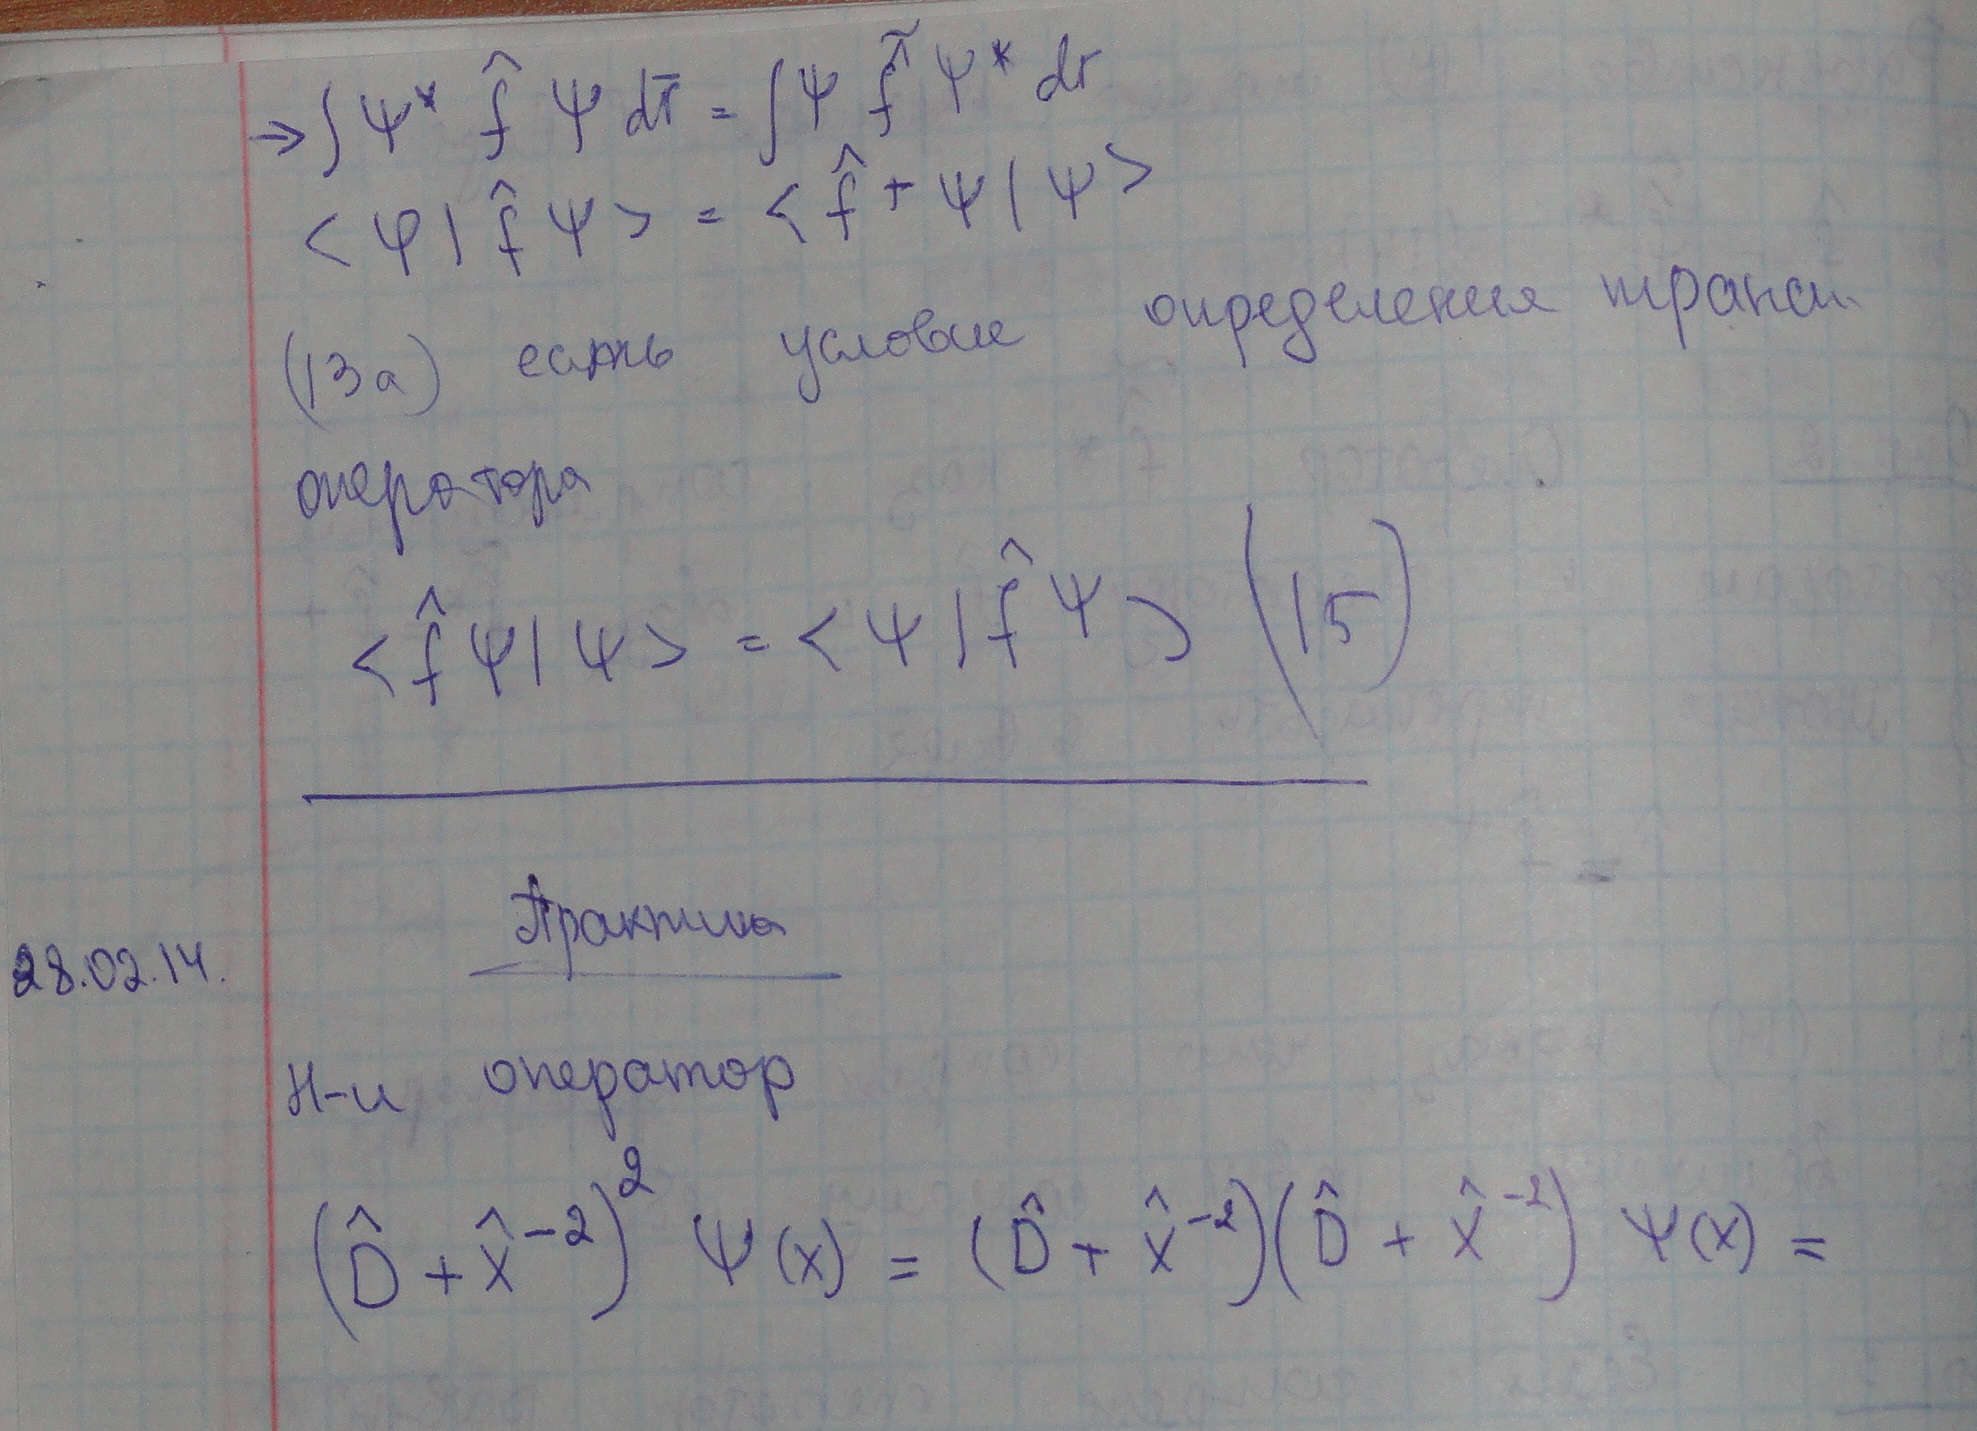 → ∫ Ψ* f̂ Ψ dτ̄ = ∫ Ψ f̂̃ Ψ* dτ
< φ | f̂ Ψ > = < f̂⁺ Ψ | Ψ >
(13а) есть условие определения трансп.
оператора
< f̂ Ψ | Ψ > = < Ψ | f̂ Ψ > (15)
Практика
28.02.14.
Н-и оператор
(D̂ + x̂⁻²)² Ψ(x) = (D̂ + x̂⁻²)(D̂ + x̂⁻²) Ψ(x) =